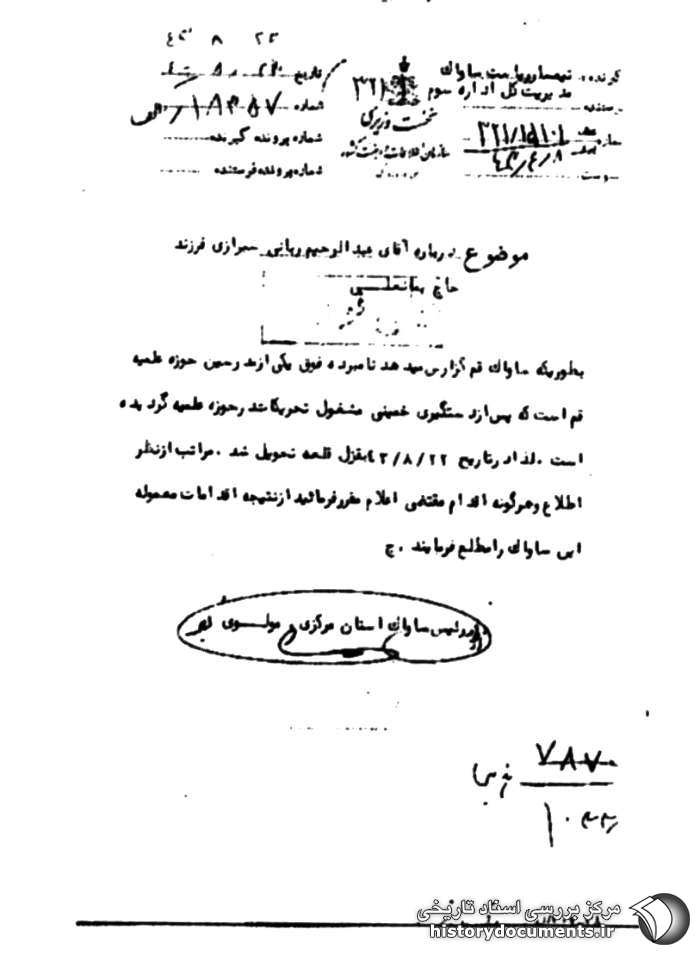 گیرنده: تیمسار ریاست ساواک
مدیریت کل اداره سوم
۳۲۱
تاریخ
شماره
شماره پرونده گیرنده
شماره پرونده فرستنده
نخست وزیری
سازمان اطلاعات و امنیت کشور
موضوع: درباره آقای عبدالرحیم ربانی شیرازی فرزند
حاج
بطوریکه ساواک قم گزارش میدهد نامبرده فوق یکی از مدرسین حوزه علمیه
قم است که پس از دستگیری خمینی مشغول تحریکات در حوزه علمیه گردیده
است . لذا در تاریخ ۴۳/۸/۲۲ بقزل قلعه تحویل شد . مراتب از نظر
اطلاع و هرگونه اقدام مقتضی اعلام مقرر فرمائید از نتیجه اقدامات معموله
این ساواک را مطلع فرمایند . چ
رئیس ساواک استان مرکزی . مولوی
۷۸۷
مرکز بررسی اسناد تاریخی
historydocuments.ir